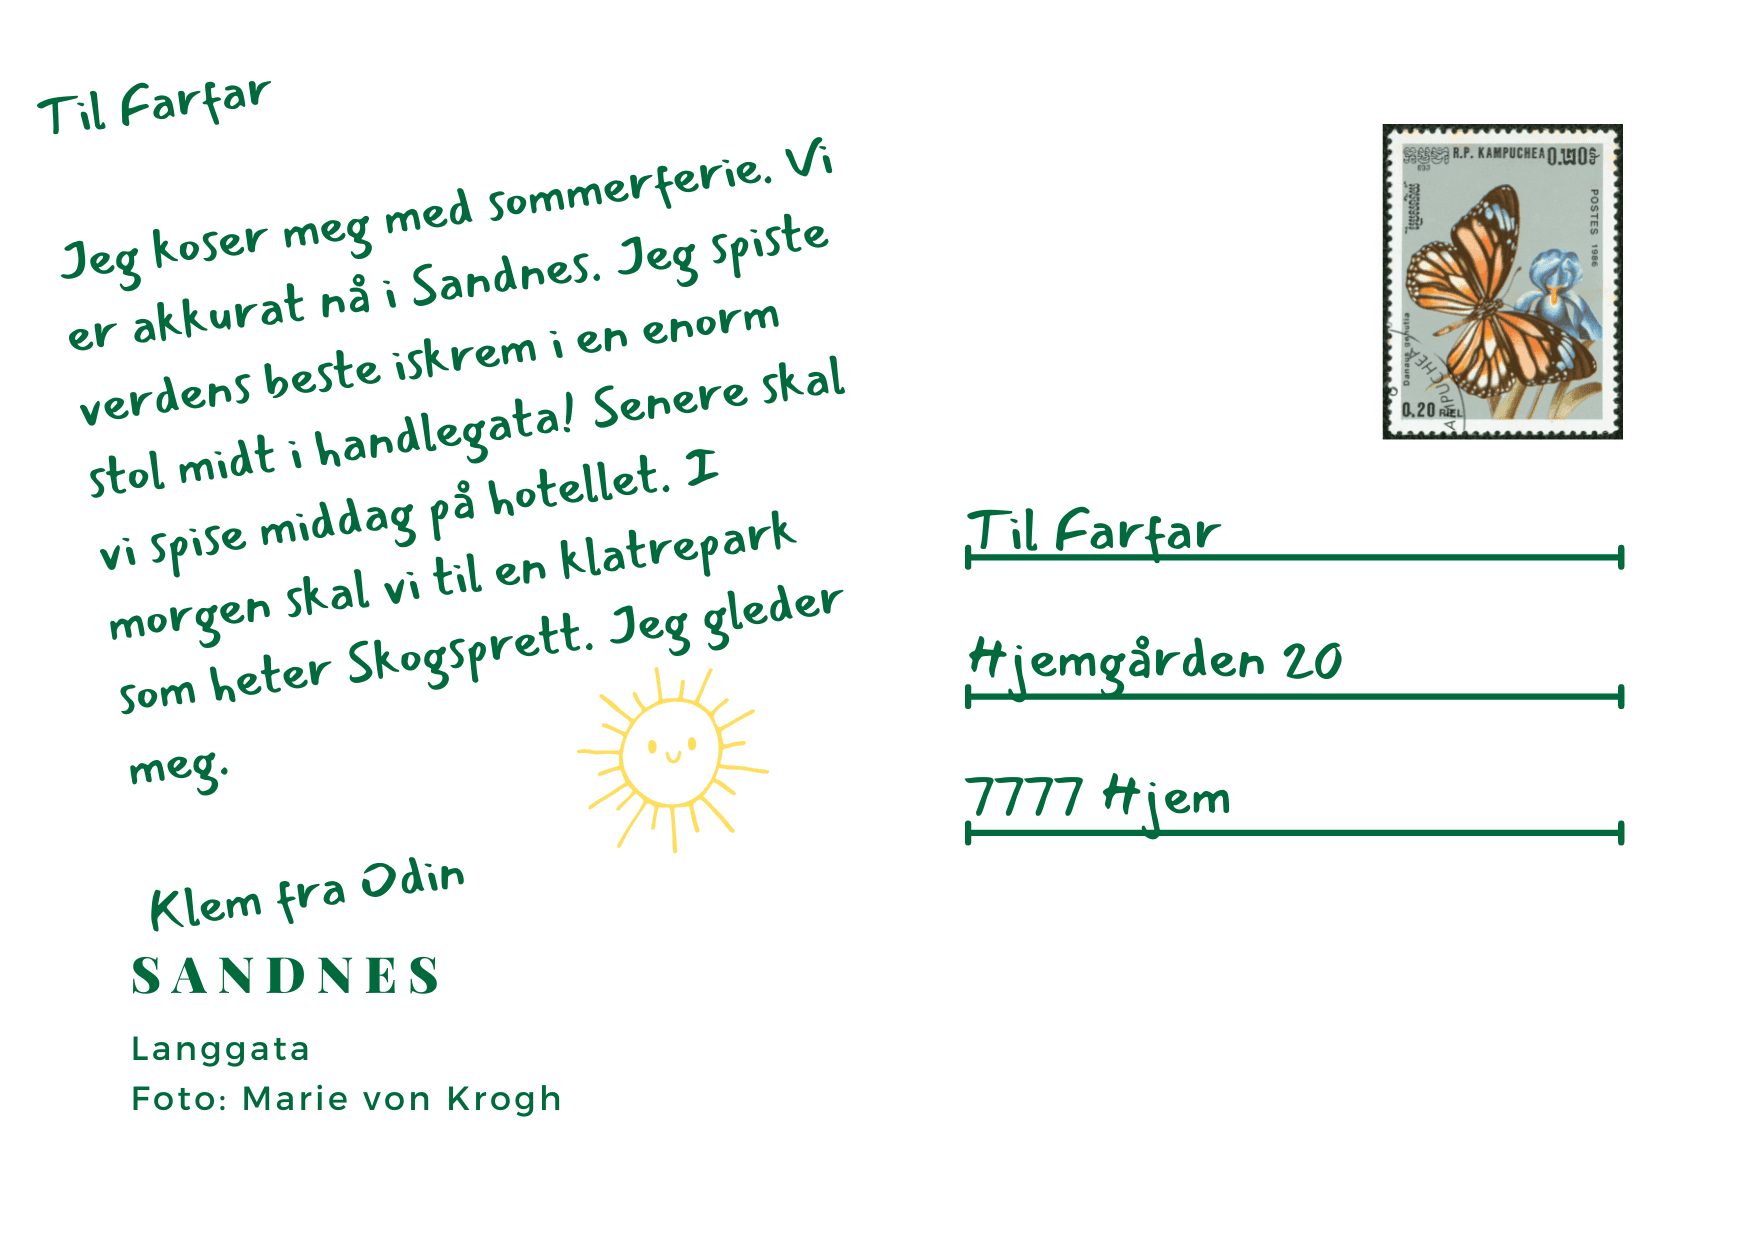 Til Farfar
Jeg koser meg med sommerferie. Vi
er akkurat nå i Sandnes. Jeg spiste
verdens beste iskrem i en enorm
stol midt i handlegata! Senere skal
vi spise middag på hotellet. I
morgen skal vi til en klatrepark
som heter Skogsprett. Jeg gleder
meg.
Klem fra Odin
SANDNES
Langgata
Foto: Marie von Krogh
R.P. KAMPUCHEA
POSTES 1986
Danaus genutia
0.20 RIEL
Til Farfar
Hjemgården 20
7777 Hjem